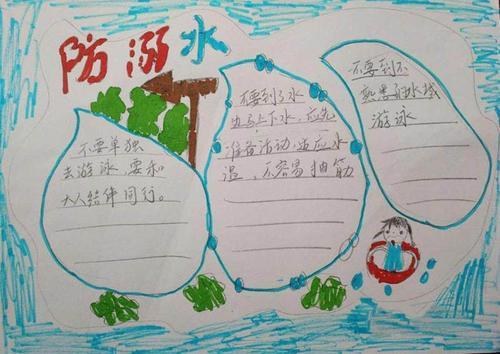 防溺水
不要单独
去游泳,要和
大人结伴同行。
不要到了水
边马上下水,应先
准备活动,适应水
温,不容易抽筋
不要到不
熟悉的水域
游泳